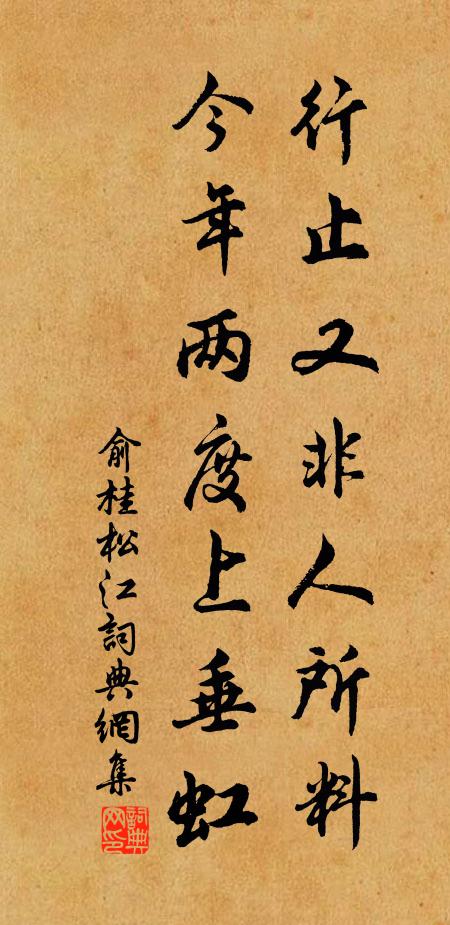 行止又非人所料
今年两度上垂虹
俞桂松江詞典網集
詞典网印